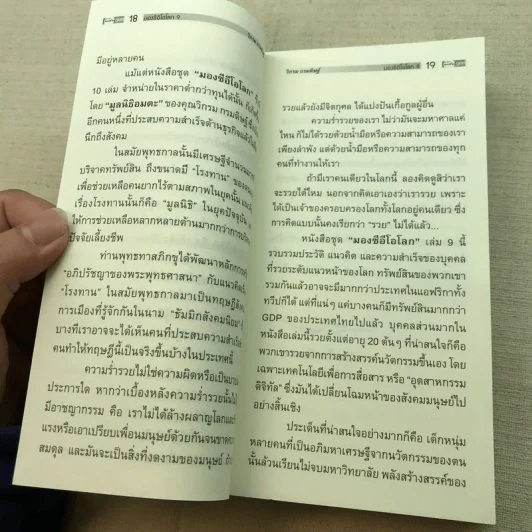 18 มองซีอีโอโลก 9
มีอยู่หลายคน
แม้แต่หนังสือชุด "มองซีอีโอโลก"
10 เล่ม จำหน่ายในราคาต่ำกว่าทุนได้นั้น
โดย "มูลนิธิอมตะ" ของคุณวิกรม กรมดิษฐ์
อีกคนหนึ่งที่ประสบความสำเร็จด้านธุรกิจแล้ว
นึกถึงสังคม
ในสมัยพุทธกาลนั้นมีเศรษฐีจำนวน
บริจาคทรัพย์สิน ถึงขนาดมี "โรงทาน" ของ
เพื่อช่วยเหลือคนยากไร้ตามสภาพในยุคนั้น
เรื่องโรงทานนั้นก็คือ "มูลนิธิ" ในยุคปัจจุบัน
ให้การช่วยเหลือหลากหลายด้านมากกว่าการบริ
ปัจจัยเลี้ยงชีพ
ท่านพุทธทาสภิกขุได้พัฒนาหลักการ
"อภิปรัชญาของพระพุทธศาสนา" กับแนวคิด
"โรงทาน" ในสมัยพุทธกาลมาเป็นทฤษฎี
การเมืองที่รู้จักกันในนาม "ธัมมิกสังคมนิยม"
บางทีเราอาจจะได้เห็นคนที่ประสบความสำเร็จ
คนทำให้ทฤษฎีนี้เป็นจริงขึ้นบ้างในประเทศนี้
ความร่ำรวยไม่ใช่ความผิดหรือเป็น
ประการใด หากว่าเบื้องหลังความร่ำรวยนั้น
มีอาชญากรรม คือ เราไม่ได้ล้างผลาญโลก
แรงหรือเอาเปรียบเพื่อนมนุษย์ด้วยกันจนขาด
สมดุล และมันจะเป็นสิ่งที่งดงามของมนุษย์
วิกรม กรมดิษฐ์ มองซีอีโอโลก 9 19
รวยแล้วยังมีจิตกุศล ได้แบ่งปันเกื้อกูลผู้อื่น
ความร่ำรวยของเรา ไม่ว่ามันจะมหาศาลแค่
ไหน ก็ไม่ได้รวยด้วยน้ำมือหรือความสามารถของเรา
เพียงลำพัง แต่ด้วยน้ำมือหรือความสามารถของทุก
คนที่ทำงานให้เรา
ถ้ามีเราคนเดียวในโลกนี้ ลองคิดดูสิว่าเรา
จะรวยได้ไหม นอกจากคิดเอาเองว่าเรารวย เพราะ
ได้เป็นเจ้าของครอบครองโลกทั้งโลกอยู่คนเดียว ซึ่ง
การคิดแบบนั้นคงเรียกว่า "รวย" ไม่ได้แล้ว...
หนังสือชุด "มองซีอีโอโลก" เล่ม 9 นี้
รวบรวมประวัติ แนวคิด และความสำเร็จของบุคคล
ที่รวยระดับแนวหน้าของโลก ทรัพย์สินของพวกเขา
รวมกันแล้วอาจจะมีมากกว่าประเทศในแอฟริกาทั้ง
ทวีปก็ได้ แต่ที่แน่ๆ แค่บางคนก็มีทรัพย์สินมากกว่า
GDP ของประเทศไทยไปแล้ว บุคคลส่วนมากใน
หนังสือเล่มนี้รวยตั้งแต่อายุ 20 ต้นๆ ที่น่าสนใจก็คือ
พวกเขารวยจากการสร้างสรรค์นวัตกรรมขึ้นเอง โดย
เฉพาะเทคโนโลยีเพื่อการสื่อสาร หรือ "อุตสาหกรรม
ดิจิทัล" ซึ่งมันได้เปลี่ยนโฉมหน้าของสังคมมนุษย์ไป
อย่างสิ้นเชิง
ประเด็นที่น่าสนใจอย่างมากก็คือ เด็กหนุ่ม
หลายคนที่เป็นอภิมหาเศรษฐีจากนวัตกรรมของตน
นั้นล้วนเรียนไม่จบมหาวิทยาลัย พลังสร้างสรรค์ของ